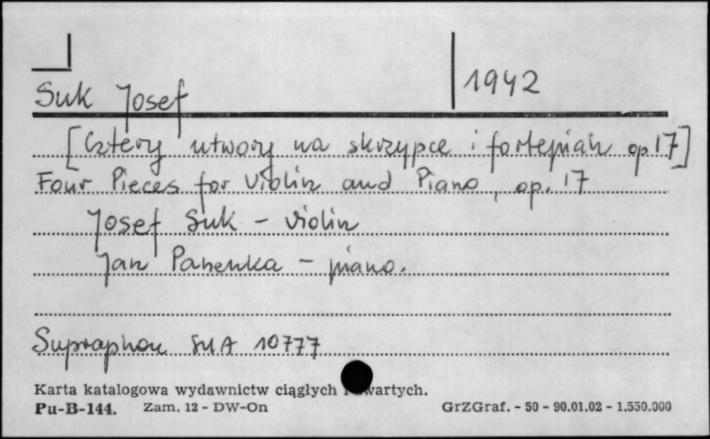 Suk Josef 1942
[Cztery utwory na skrzypce i fortepian op 17]
Four Pieces for Violin and Piano, op. 17
Josef Suk - violin
Jan Panenka - piano.
Supraphon SUA 10777
Karta katalogowa wydawnictw ciągłych wartych.
Pu-B-144. Zam. 12 - DW-On GrZGraf. - 50 - 90.01.02 - 1.550.000